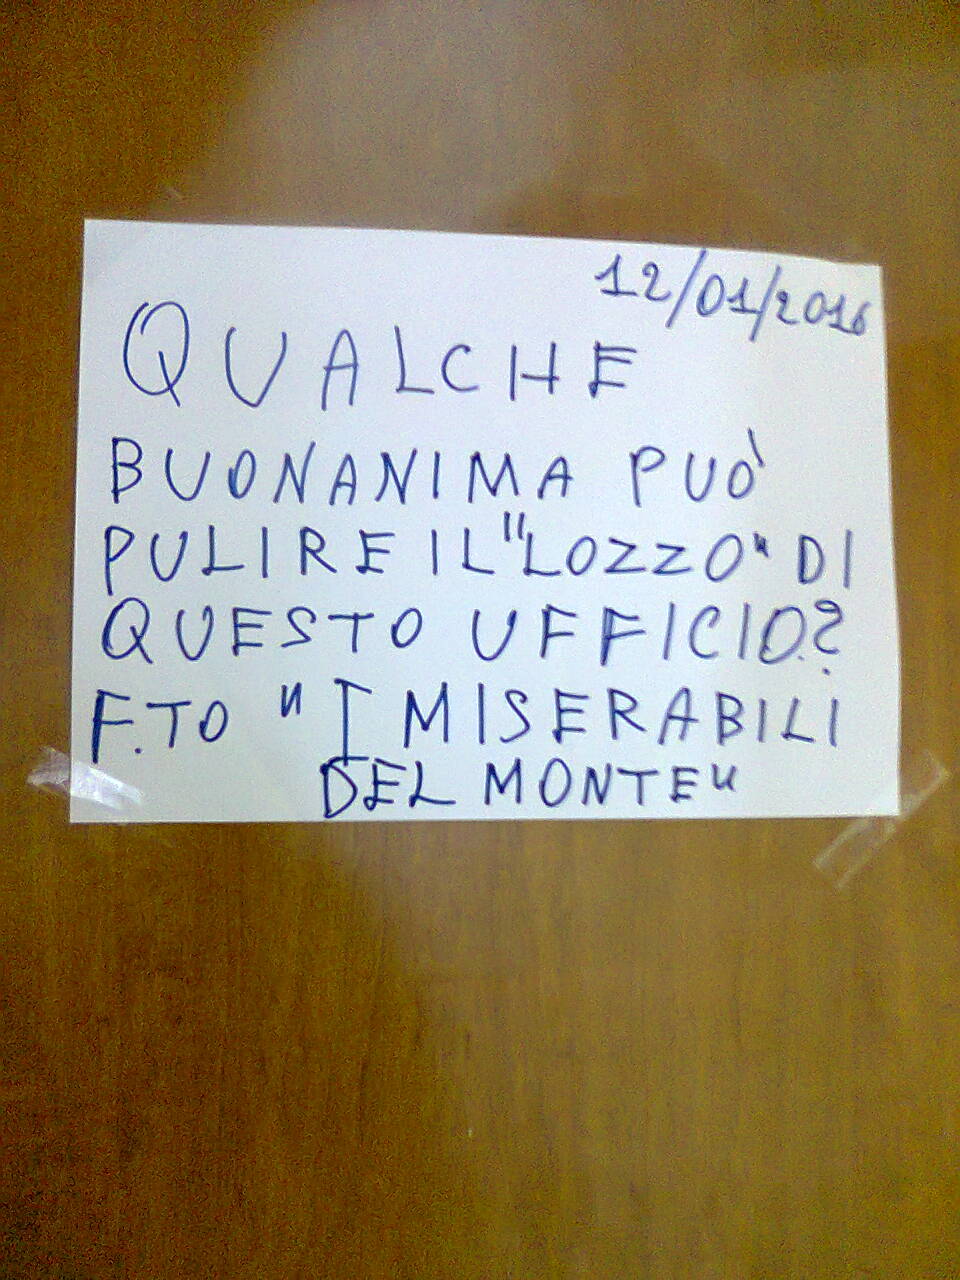 12/01/2016
QUALCHE
BUONANIMA PUÒ
PULIRE IL "LOZZO" DI
QUESTO UFFICIO?
F.TO "I MISERABILI
DEL MONTE"